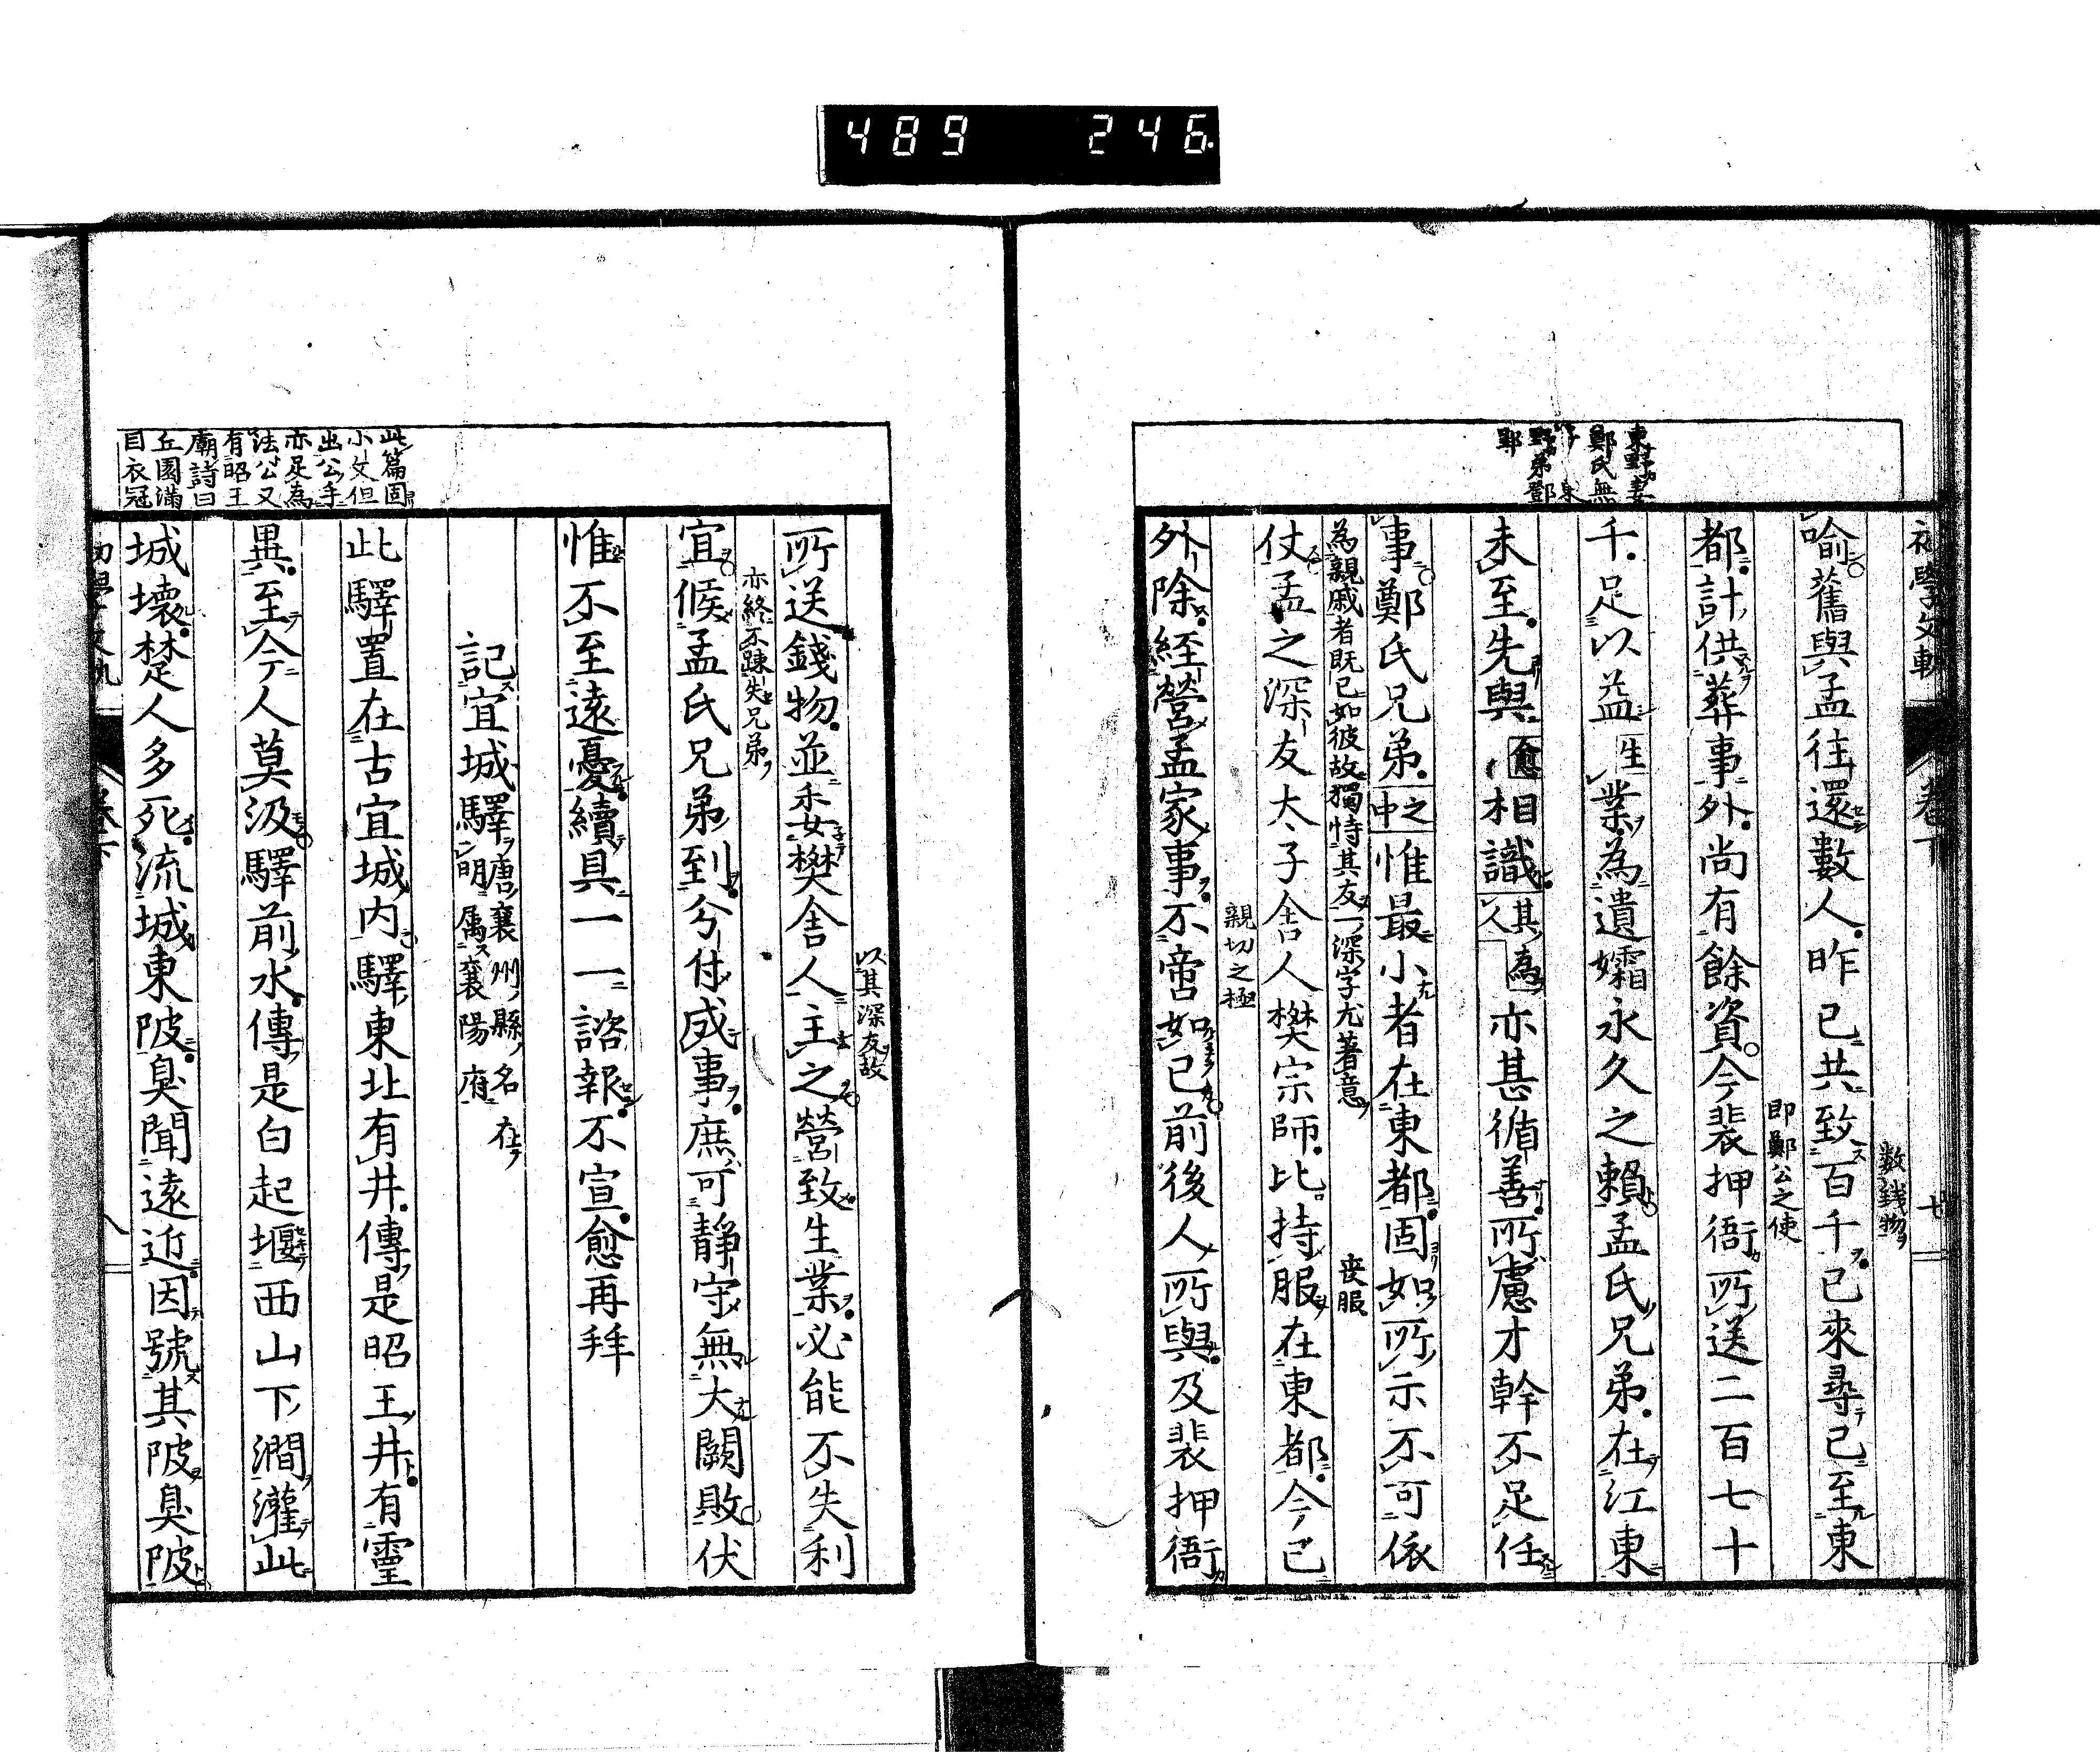 489 246
東野妻
鄭氏無
子東
野弟酆
郢
喻舊與孟往還數人昨已共致百千已來尋已至東
数錢物
都計供葬事外尚有餘資今裴押衙所送二百七十
即鄭公之使
千足以益生業為遺孀永久之賴孟氏兄弟在江東
未至先與愈相識其為人亦甚循善所慮才幹不足任
事鄭氏兄弟之中惟最小者在東都固如所示不可依
為親戚者既已如彼故獨恃其友一深字尤著意
喪服
仗孟之深友太子舍人樊宗師比持服在東都今已
親切之極
外除經營孟家事不啻如已前後人所與及裴押衙
卷下
七
以其深友故
所送錢物並委樊舍人主之營致生業必能不失利
亦終不踈失兄弟
宜候孟氏兄弟到分付成事庶可靜守無大闕敗伏
惟不至遠憂續具一一諮報不宣愈再拜
記宜城驛唐襄州縣名在
明属襄陽府
此驛置在古宜城内驛東北有井傳是昭王井有靈
異至今人莫汲驛前水傳是白起堰西山下澗灌此
城壞楚人多死流城東陂臭聞遠近因號其陂臭陂
此篇固
小文但
出公手
亦足為
法公又
有昭王
廟詩曰
丘園滿
目衣冠